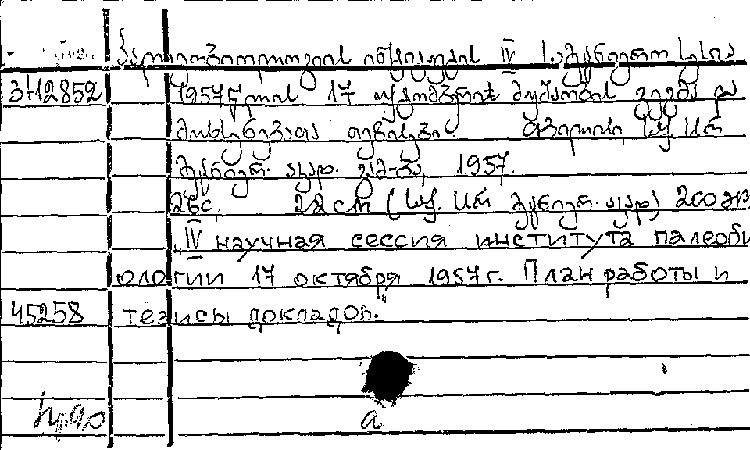 პალეობიოლოგიის ინსტიტუტის IV სამეცნიერო სესია
3112852 1957 წლის 17 ოქტომბერს მუშაობის გეგმა და
მოხსენებათა თეზისები. თბილისი, საქ. სსრ
მეცნიერ. აკად. გამ-ბა, 1957.
22 см (საქ. სსრ მეცნიერ. აკად) 200 ეგზ
"IV научная сессия института палеоби
ологии 17 октября 1957 г. План работы и
45258 тезисы докладов."
а